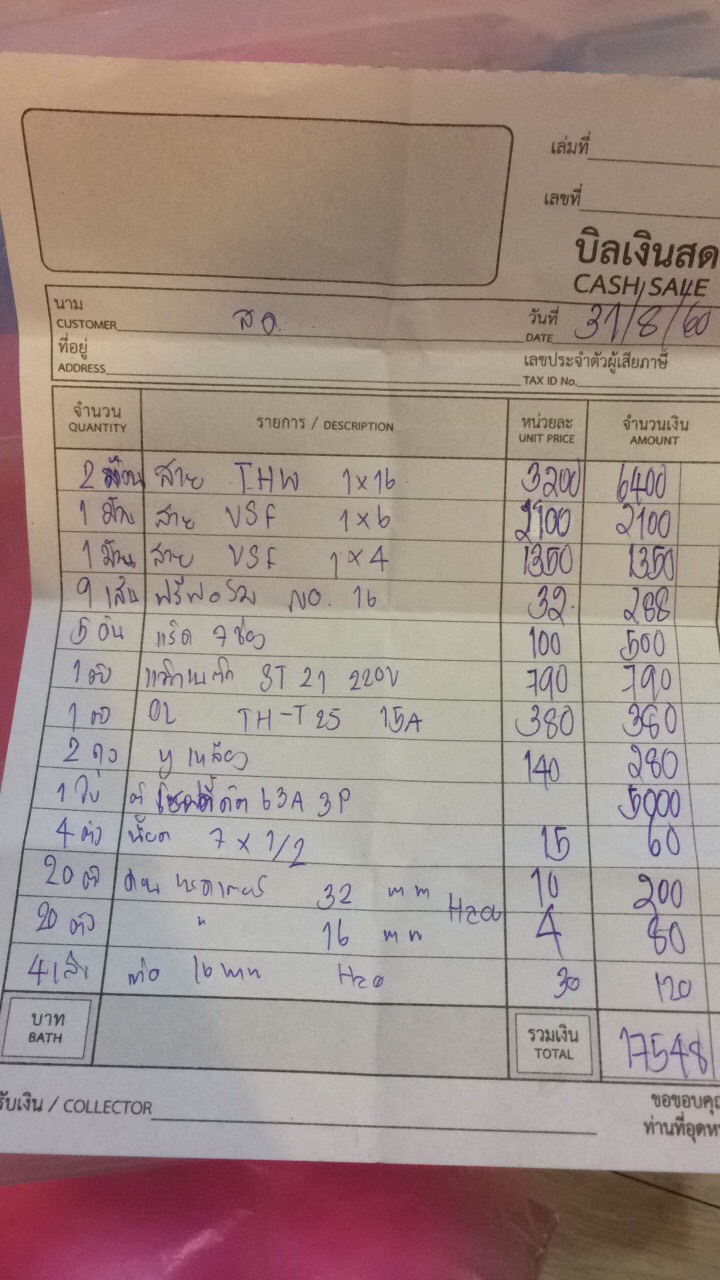 เล่มที่
เลขที่
บิลเงินสด
CASH SALE
นาม
CUSTOMER สด.
วันที่
DATE 31/8/60
ที่อยู่
ADDRESS
เลขประจำตัวผู้เสียภาษี
TAX ID No.
จำนวน รายการ / DESCRIPTION หน่วยละ จำนวนเงิน
QUANTITY UNIT PRICE AMOUNT
2 ม้วน สาย THW 1x16 3200 6400
1 ม้วน สาย VSF 1x6 2100 2100
1 ม้วน สาย VSF 1x4 1350 1350
9 เส้น ฟรีฟอร์ม NO. 16 32 288
5 อัน 7 ช่อง 100 500
1 ตัว แม็กเนติก ST 21 220V 790 790
1 ตัว OL TH-T25 15A 380 380
2 ถุง เหลือง 140 280
1 ใบ 63A 3P 5000
4 ตัว น็อต 7 x 1/2 15 60
20 ตัว 32 mm 10 200
20 ตัว " 16 mm Haco 4 80
4 เส้น ท่อ 16 Haco 30 120
บาท
BATH
รวมเงิน
TOTAL 17548
รับเงิน / COLLECTOR
ขอขอบคุณ
ท่านที่อุดห